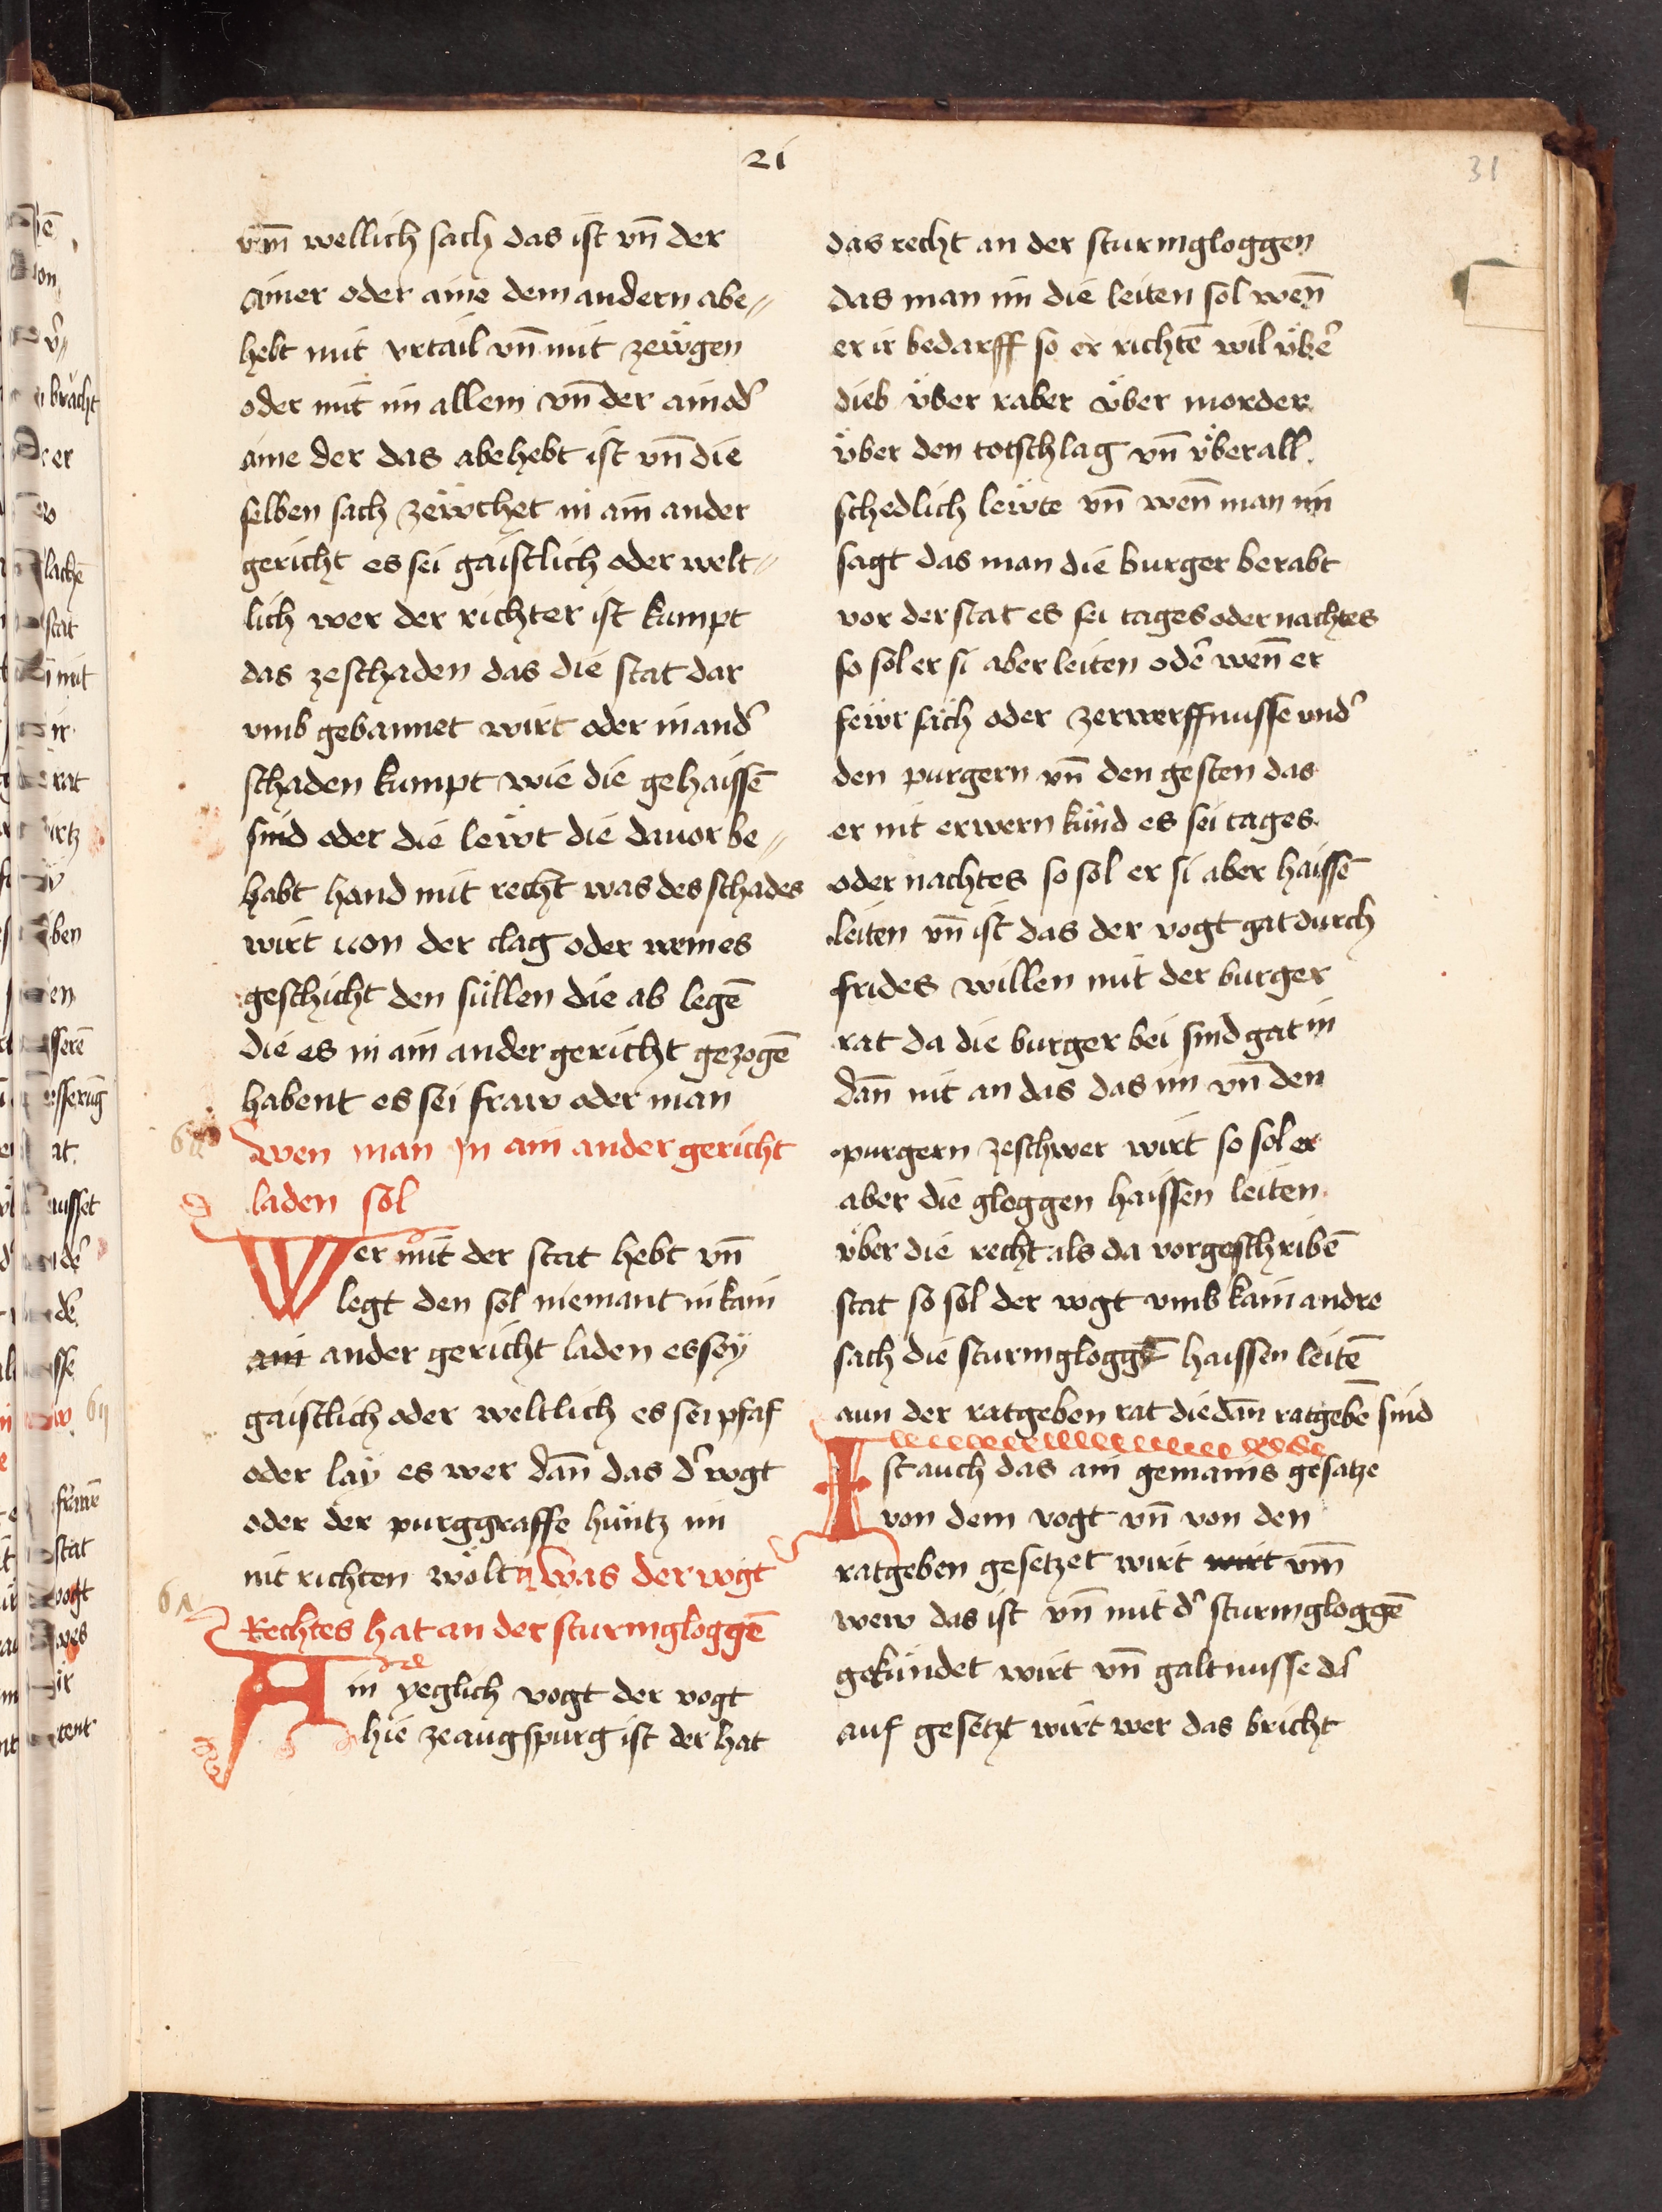 21
31
vm̄ wellich sach das ist vn̄ der
ainer oder aine dem andern abe„
hebt mit vrtail vn̄ mit zewgen
oder mit im allem vn̄ der ain od̕
aine der das abehebt ist vn̄ die
selben sach zewchet in ain ander
gericht es sei gaistlich oder welt„
lich wer der richter ist kumpt
das zeschaden das die stat dar
vmb gebannet wirt oder in and̕
schaden kumpt wie die gehaissē
sind oder die lewt die dauor be„
habt hand mit recht was des schades
wirt uon der clag oder wem es
geschicht den süllen die ab legē
die es in ain ander gericht gezogē
habent es sei fraw oder man
wen man jn ain ander gericht
laden sol
Wer mit der stat hebt vn̄
legt den sol niemant in kain
ain ander gericht laden es sey
gaistlich oder weltlich es sei pfaf
oder laÿ es wer dān das d̕ vogt
oder der purggraffe hüntz im
nit richten wölt was der vogt
Rechtes hat an der sturmgloggē
Ain yeglich vogt der vogt
hie zeaugspurg ist der hat
das recht an der sturmgloggen
das man im die leiten sol wen̄
er ir bedarff so er richtē wil über
dieb über raber über morder
über den totschlag vn̄ über all
schedlich lewte vn̄ wen̄ man im
sagt das man die burger berabt
vor der stat es sei tages oder nachtes
so sol er si aber leiten oder wen̄ er
fewr säch oder zerwerffnusse vnd̕
den purgern vn̄ den gesten das
er nit erwern künd es sei tages
oder nachtes so sol er si aber haissē
leiten vn̄ ist das der vogt gat durch
frides willen mit der burger
rat da die burger bei sind gat in
dān nit an das das im vn̄ den
purgern zeschwer wirt so sol er
aber die gloggen haissen leiten
über die recht als da vorgeschribē
stat so sol der vogt vmb kain andre
sach die sturmgloggē haissen leitē
aun der ratgeben rat die dān ratgebē sind
Ist auch das ain gemains gesatze
von dem vogt vn̄ von den
ratgeben gesetzet wirt wirt vm̄
wew das ist vn̄ mit d̕ sturmgloggē
gekündet wirt vn̄ galtnusse da
auf gesetzt wirt wer das bricht